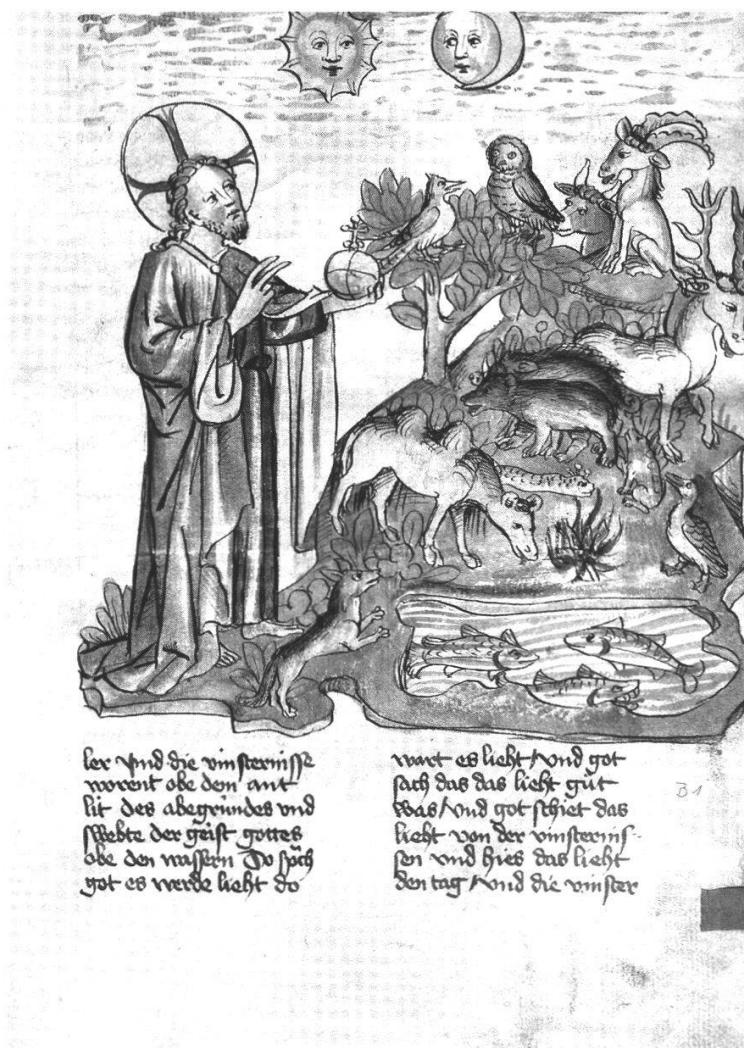 ler Vnd die vinsternisse
worent obe dem ant
lit des abegrundes vnd
swebte der geist gottes
obe den wassern Do sprͦch
got es werde lieht do
wart es lieht / vnd got
sach das das lieht guͦt
was / vnd got schiet das
lieht von der vinsternis-
sen vnd hies das lieht
den tag / vnd die vinster
B1